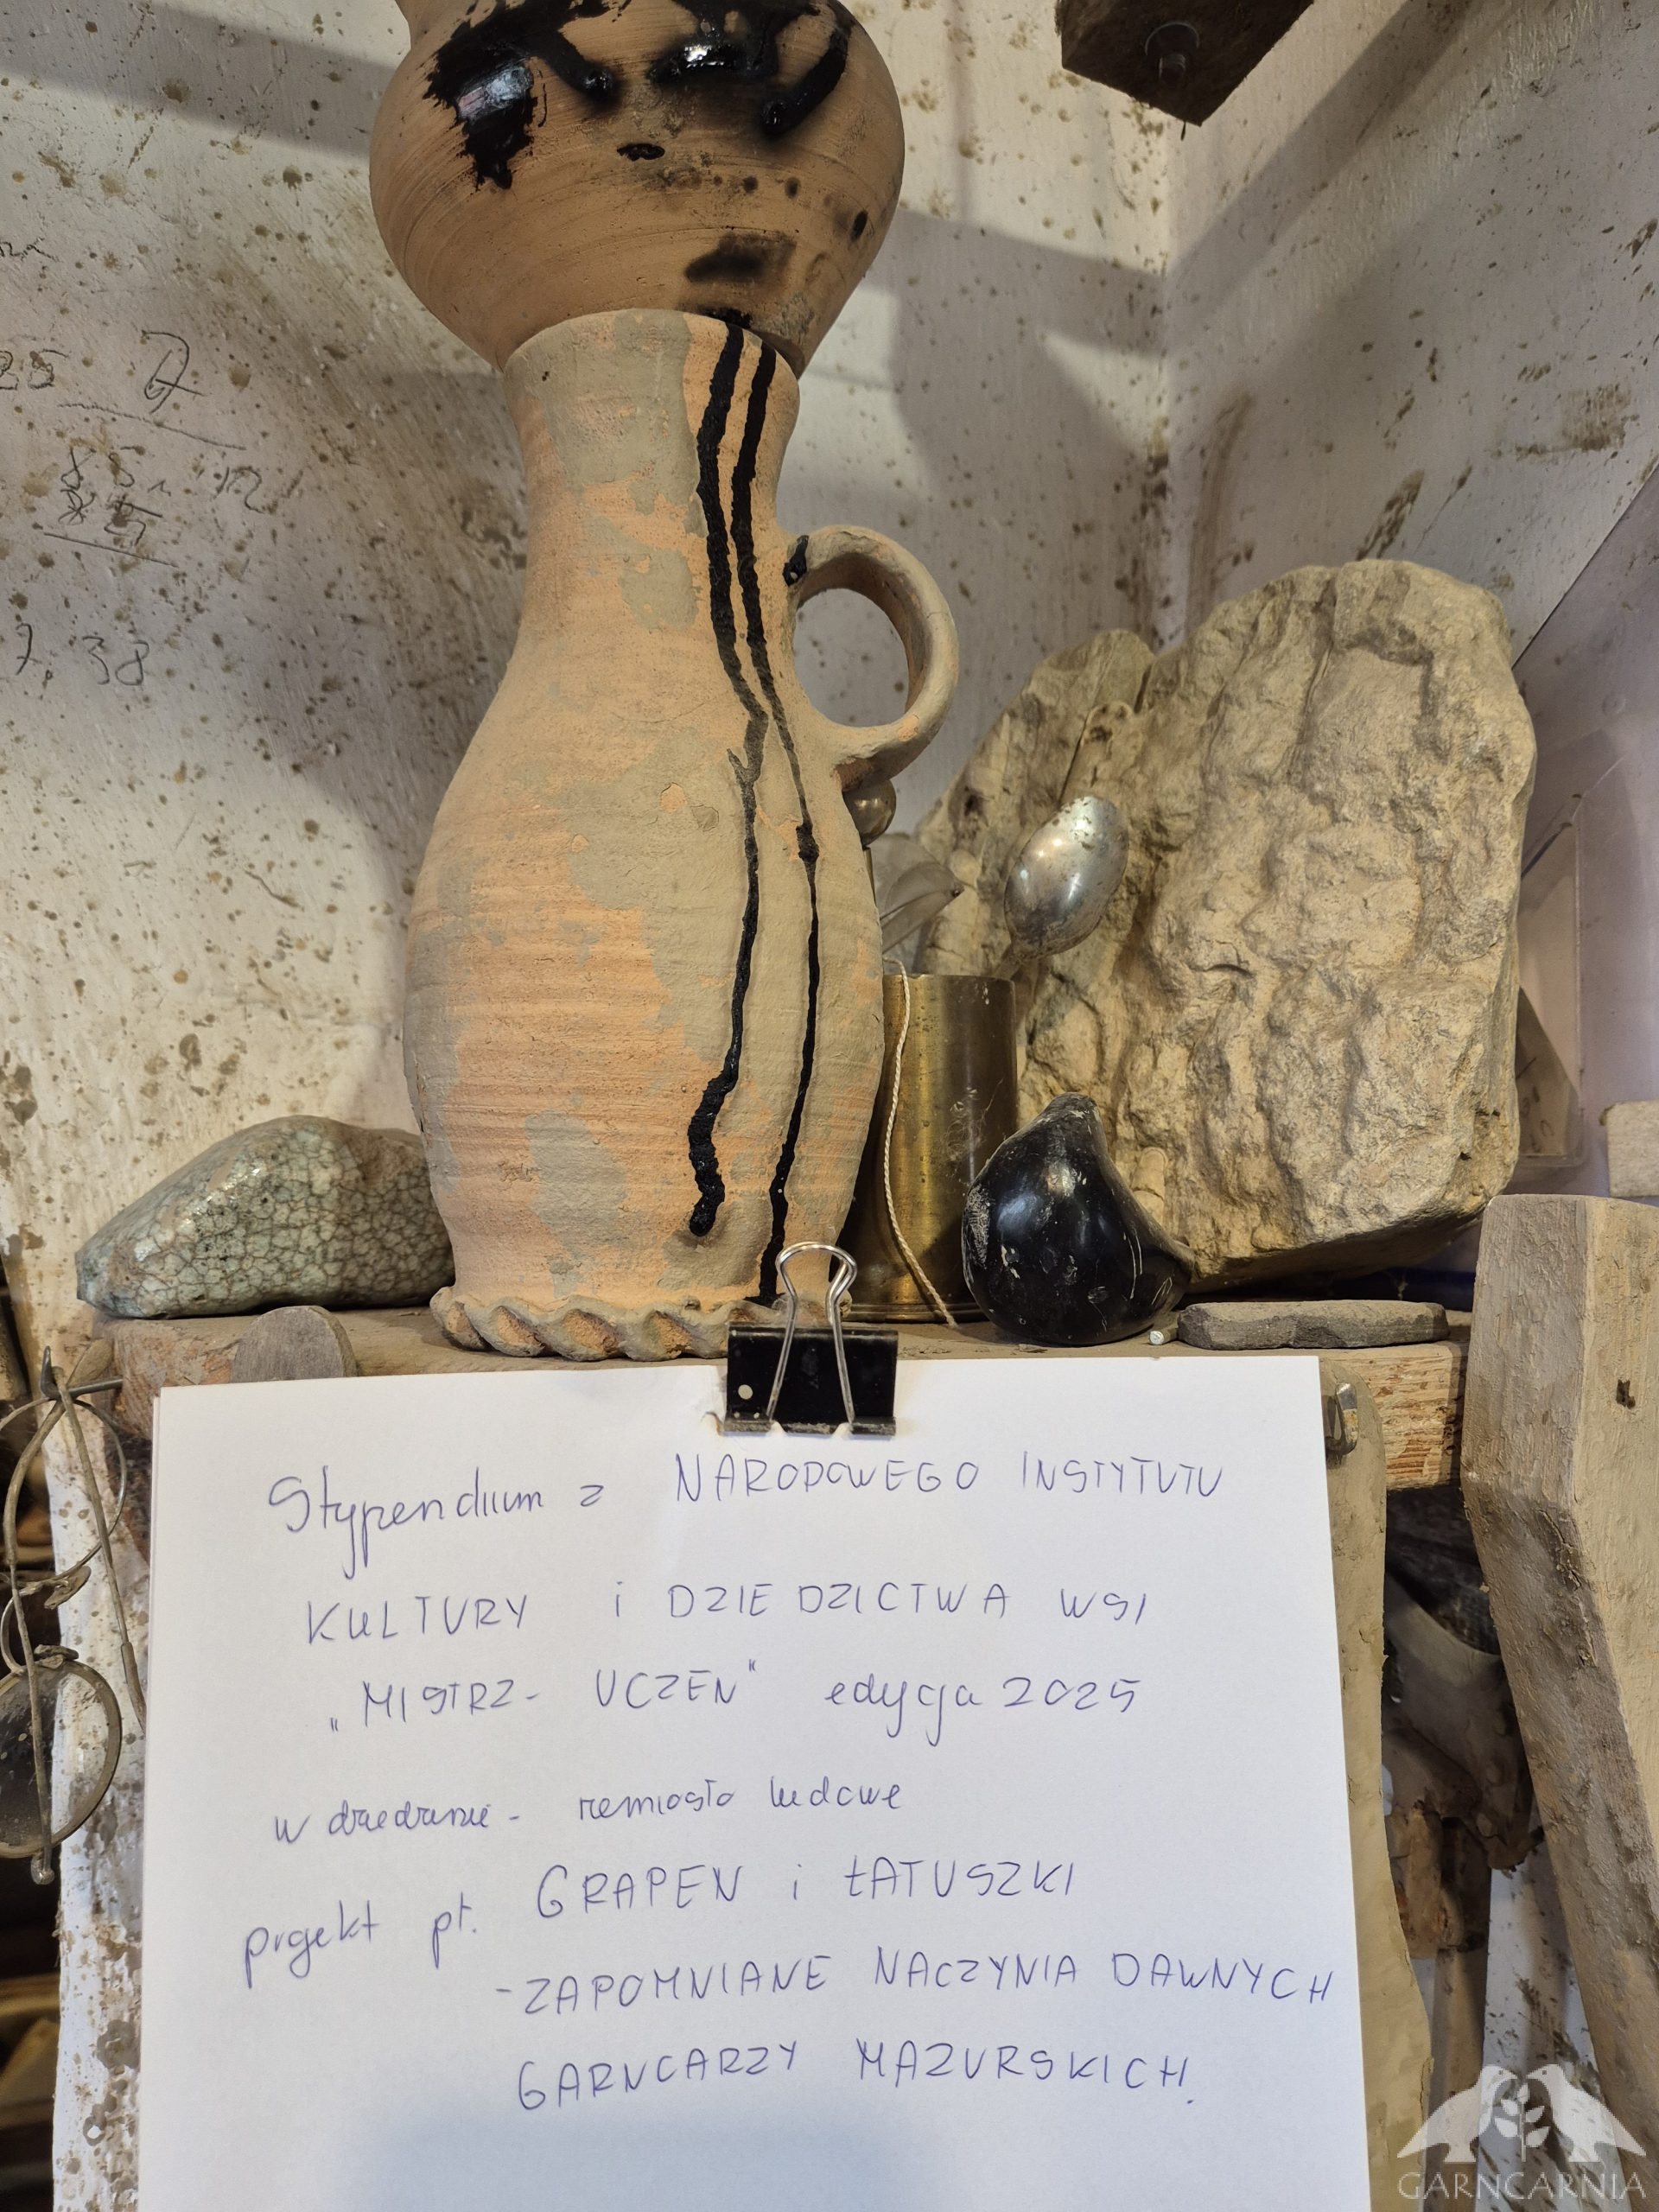 25
7,38
Stypendium z NARODOWEGO INSTYTUTU
KULTURY i DZIEDZICTWA WSI
„MISTRZ - UCZEŃ" edycja 2025
w dziedzinie - rzemiosło ludowe
projekt pt. GRAPEN i ŁATUSZKI
- ZAPOMNIANE NACZYNIA DAWNYCH
GARNCARZY MAZURSKICH.
GARNCARNIA